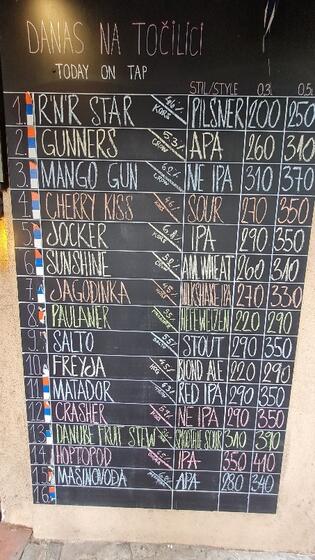 DANAS NA TOČILICI
TODAY ON TAP
STIL/STYLE 0.3 0.5
1. RN'R STAR PILSNER 200 250
2. GUNNERS 5.3% APA 260 310
3. MANGO GUN NE IPA 310 370
4. CHERRY KISS SOUR 270 350
5. JOCKER IPA 290 350
6. SUNSHINE AM WHEAT 260 310
7. JAGODINKA MILKSHAKE IPA 270 330
8. PAULANER HEFEWEIZEN 220 290
9. SALTO STOUT 290 350
10. FREYJA BLOND ALE 220 290
11. MATADOR RED IPA 290 350
12. CRASHER NE IPA 290 350
13. DANUBE FRUIT STEW SMOOTHIE SOUR 310 390
14. HOPTOPOD IPA 350 410
15. MASINOVOĐA APA 280 340
16.